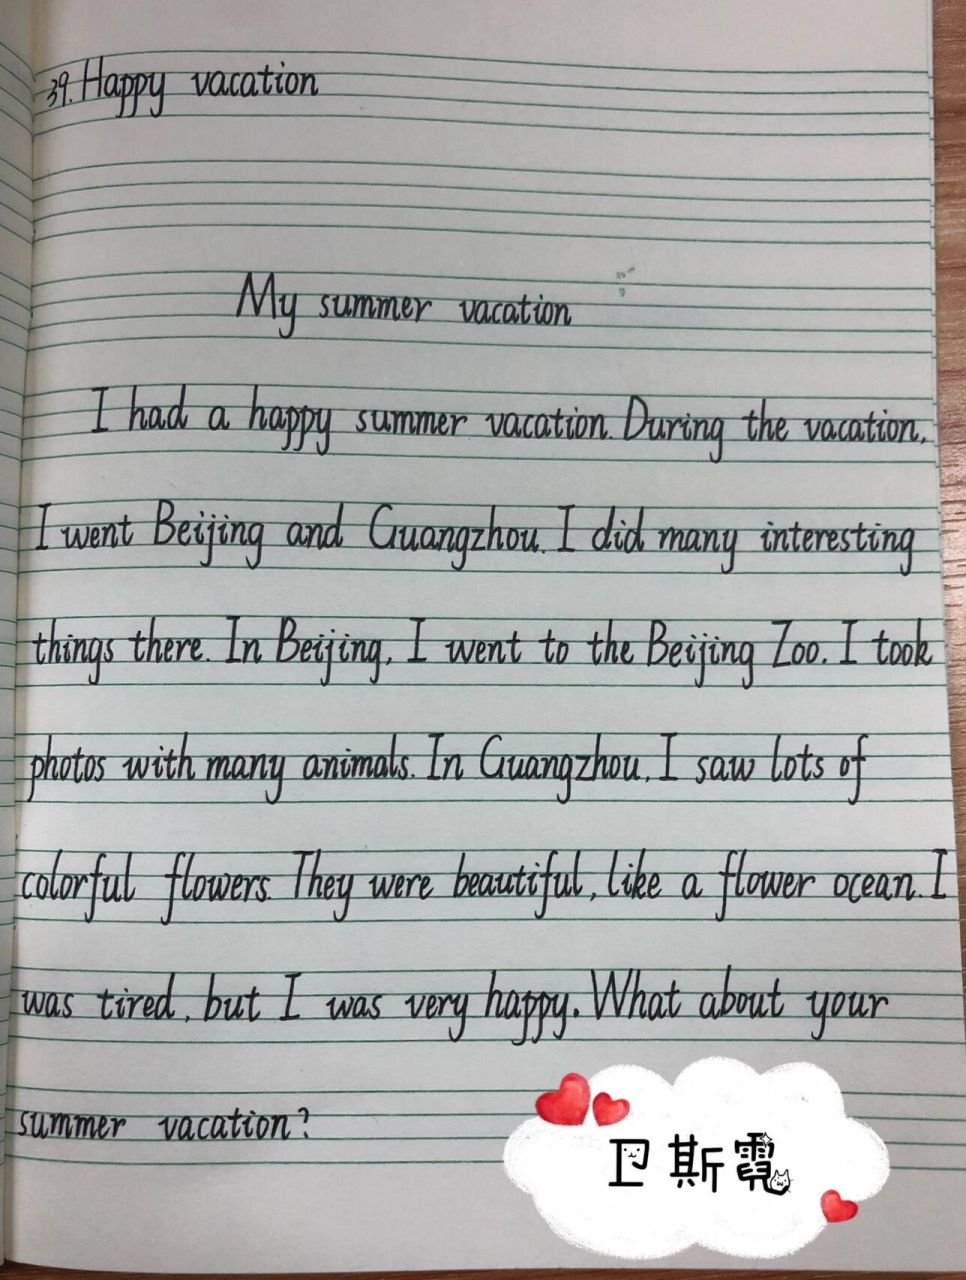 39. Happy vacation
My summer vacation
I had a happy summer vacation. During the vacation,
I went Beijing and Guangzhou. I did many interesting
things there. In Beijing, I went to the Beijing Zoo. I took
photos with many animals. In Guangzhou, I saw lots of
colorful flowers. They were beautiful, like a flower ocean. I
was tired, but I was very happy. What about your
summer vacation?
卫斯霓